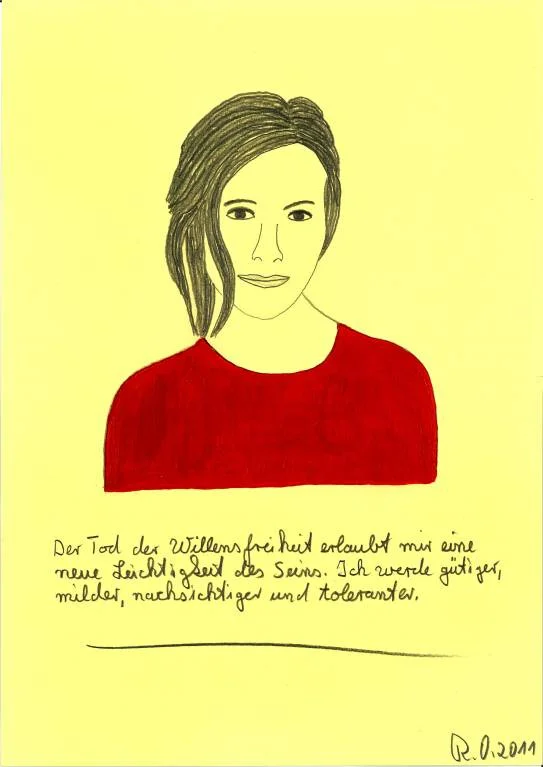 Der Tod der Willensfreiheit erlaubt mir eine
neue Leichtigkeit des Seins. Ich werde gütiger,
milder, nachsichtiger und toleranter.
R.O.2011